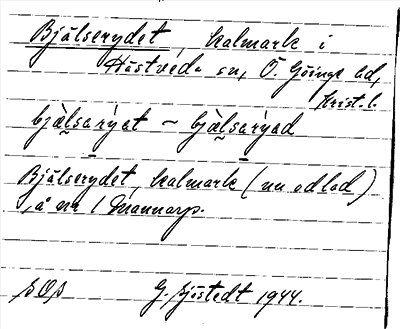 Bjälserydet, kalmark i
Hästveda sn, Ö. Göinge hd,
Krist. l.
bjälsaryat ~ bjälsaryad
Bjälserydet, kalmark (nu odlad)
å nr 1 Mannarp.
SOS G. Sjöstedt 1944.